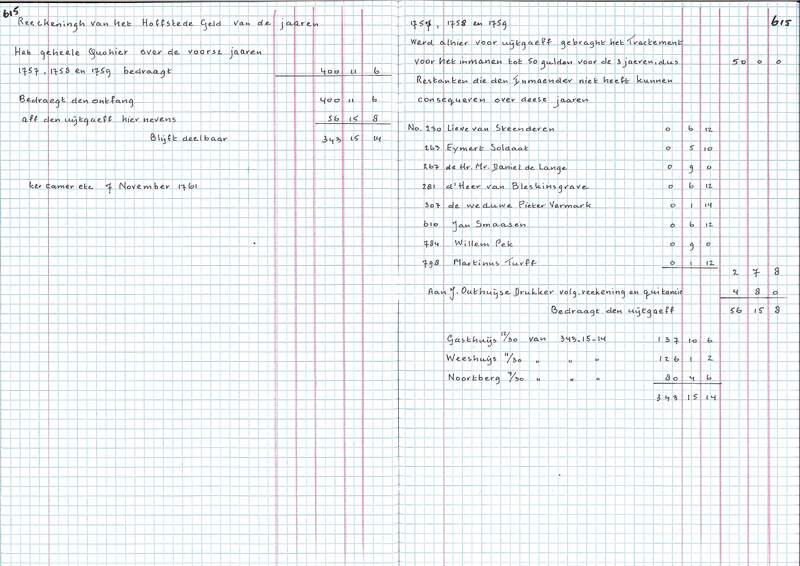 615
Reecheningh van het Hoffstede Geld van de jaaren
Het geheele Quohier over de voorsz jaaren
1757, 1758 en 1759 bedraagt 400 11 6
Bedraegt den ontfang 400 11 6
aff den uijtgaeff hier nevens 56 15 8
Blijft deelbaar 343 15 14
ter camer etc 7 November 1761
1757, 1758 en 1759 615
Werd alhier voor uijtgaeff gebraght het Tractement
voor het inmanen tot 50 gulden voor de 3 jaeren, dus 50 0 0
Restanten die den Inmaender niet heeft kunnen
consequeren over deese jaaren
No. 230 Lieve van Steenderen 0 6 12
263 Eymert Soldaat 0 5 10
267 de Hr. Mr. Daniel de Lange 0 9 0
281 d'Heer van Bleskinsgrave 0 6 12
307 de weduwe Pieter Vermark 0 1 14
610 Jan Smaasen 0 6 12
784 Willem Pek 0 9 0
798 Martinus Turff 0 1 12
2 7 8
Aan J. Outhuijse Drukker volg. reekening en quitantie 4 8 0
Bedraagt den uijtgaeff 56 15 8
Gasthuijs 12/30 van 343-15-14 137 10 6
Weeshuijs 11/30 " " " 126 1 2
Noortberg 7/30 " " " 80 4 6
343 15 14